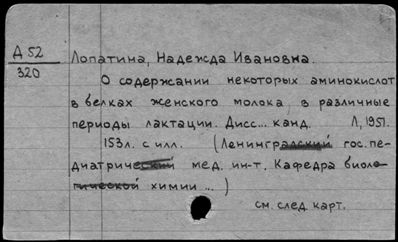 Д 52
320
Лопатина, Надежда Ивановна.
О содержании некоторых аминокислот
в белках женского молока, в различные
периоды лактации. Дисс... канд. Л, 1951.
153л. с илл. (Ленинградский гос. пе-
диатрический мед. ин-т. Кафедра биоло-
гической химии ... )
см. след. карт.